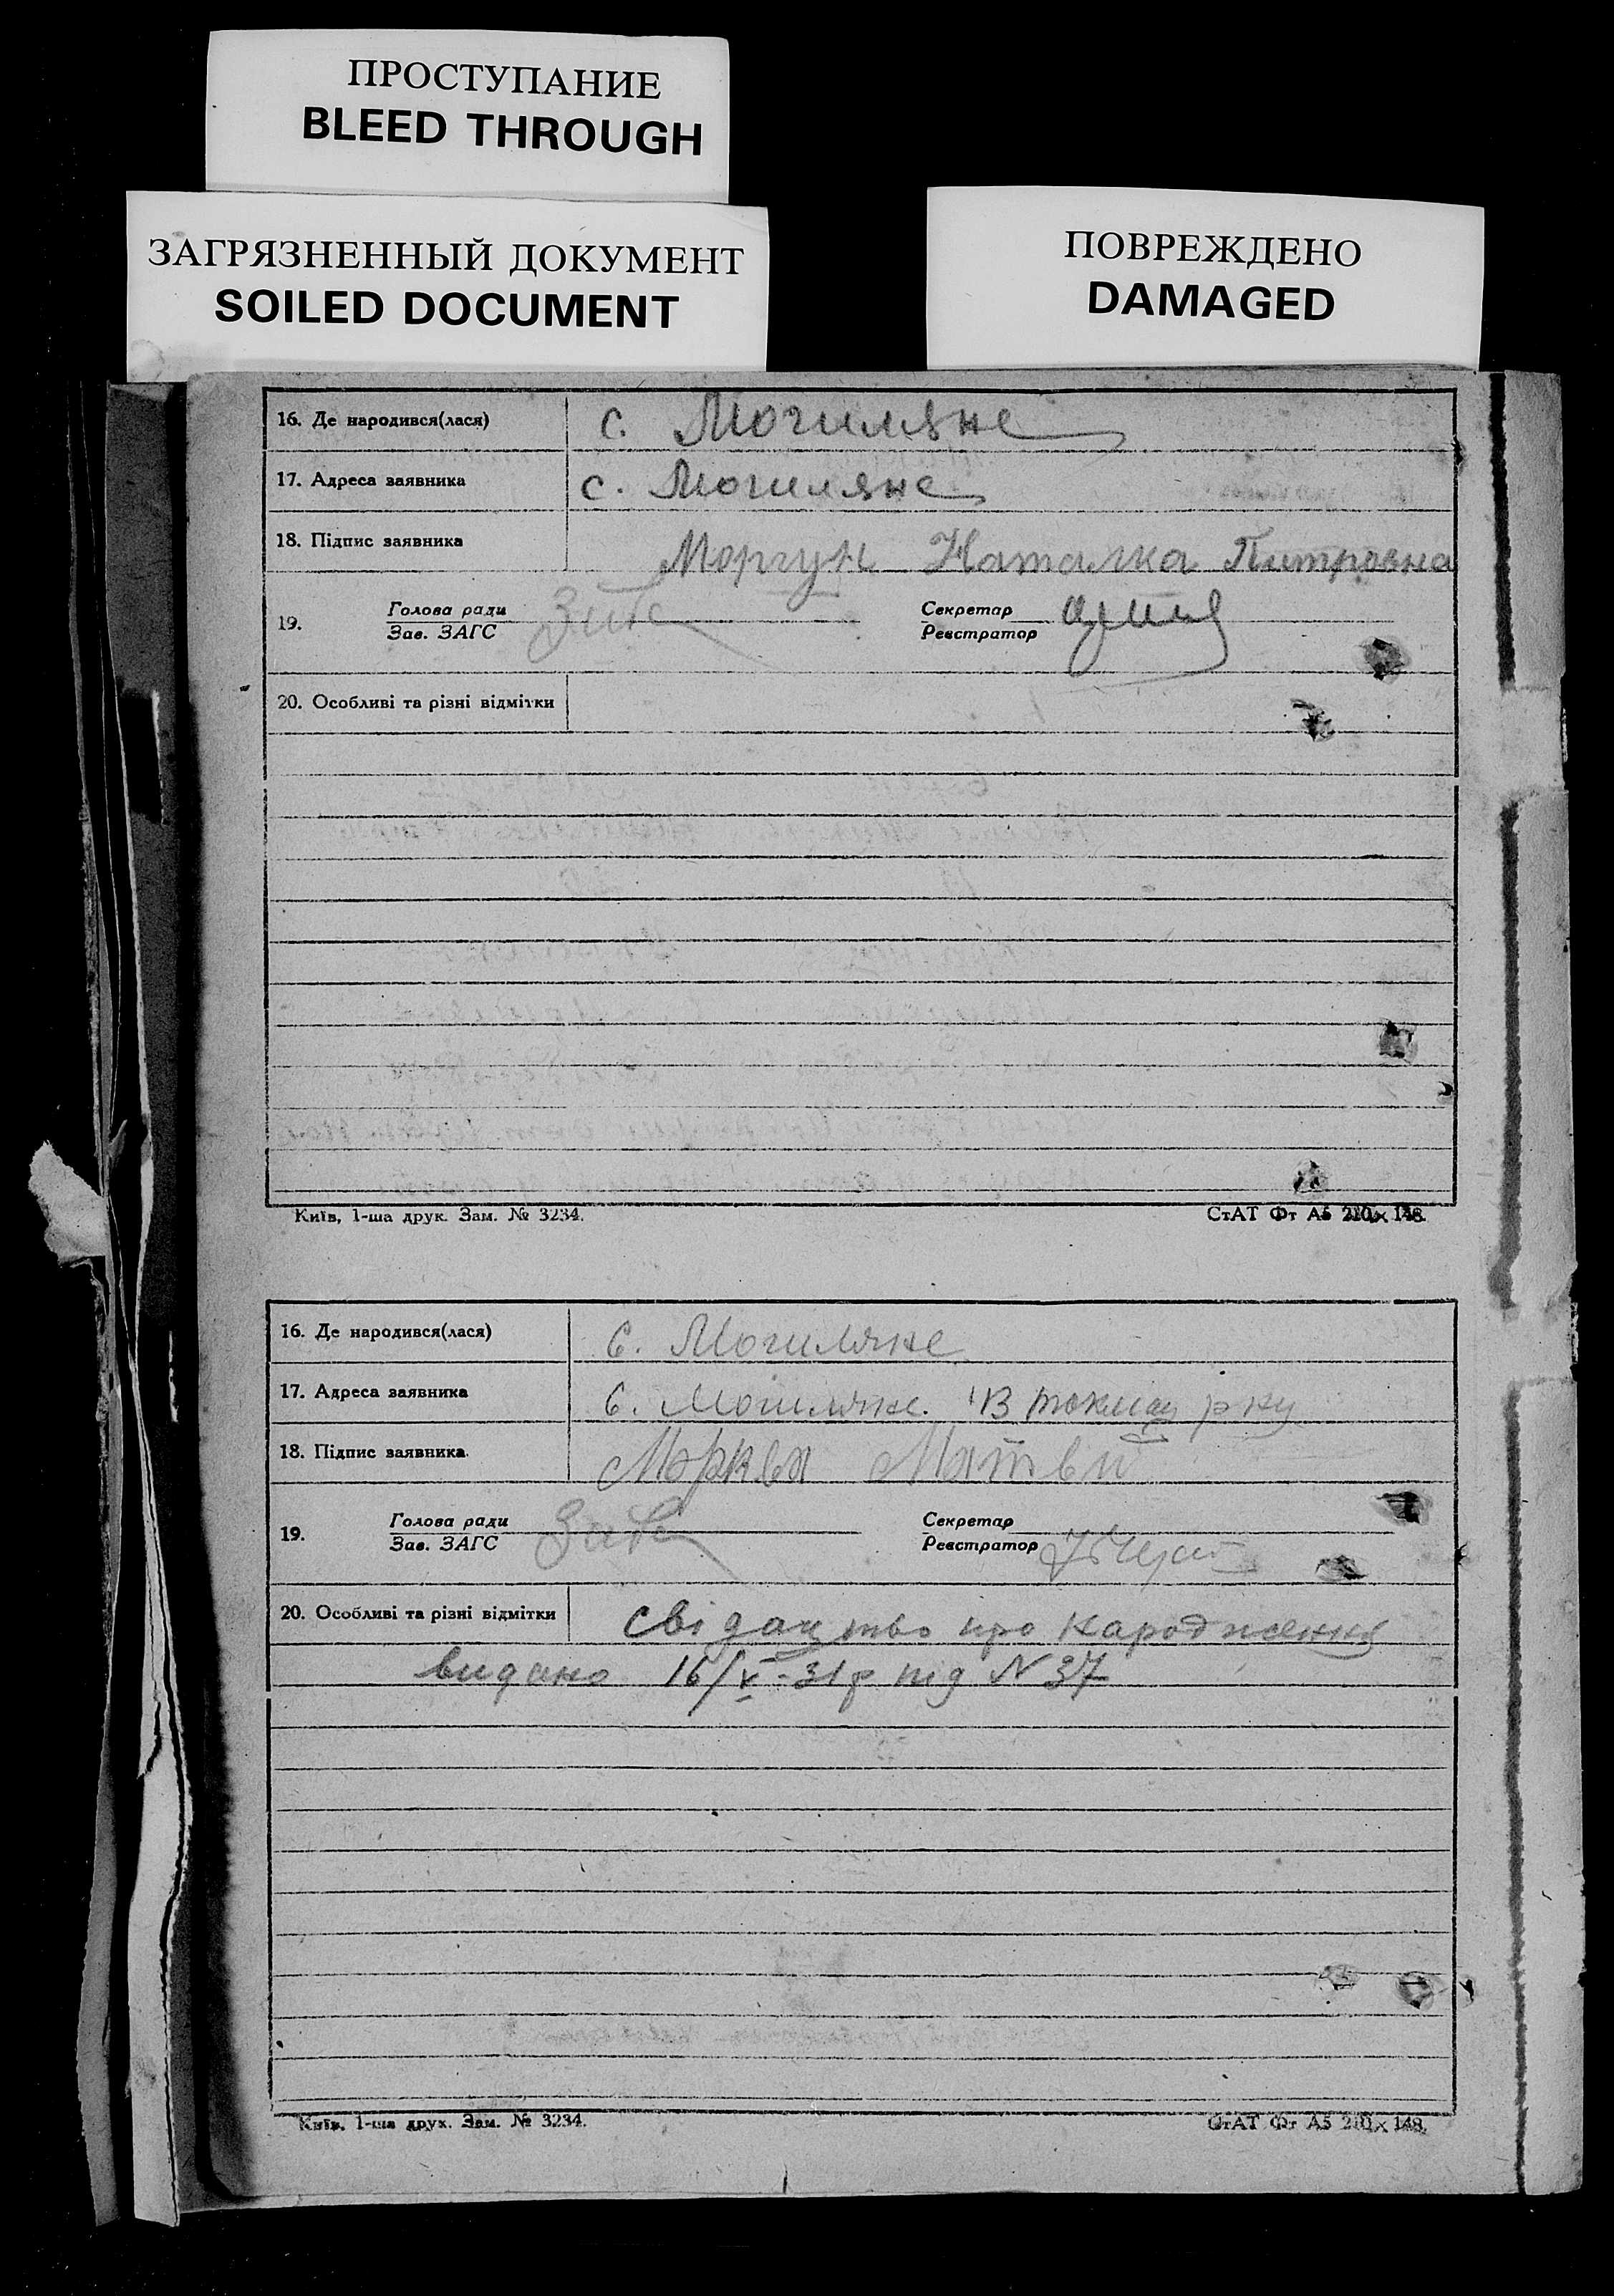 ПРОСТУПАНИЕ
BLEED THROUGH
ЗАГРЯЗНЕННЫЙ ДОКУМЕНТ
SOILED DOCUMENT
ПОВРЕЖДЕНО
DAMAGED
16. Де народився(лася) с. Могиляне
17. Адреса заявника с. Могиляне
18. Підпис заявника Моргун Наталка Питровна
19. Голова ради Секретар
Зав. ЗАГС Реєстратор
20. Особливі та різні відмітки
Київ, 1-ша друк. Зам. № 3234. СтАТ Фт А5 210×148.
16. Де народився(лася) с. Могиляне
17. Адреса заявника с. Могиляне. В токмац р ну
18. Підпис заявника
19. Голова ради Секретар
Зав. ЗАГС Реєстратор
20. Особливі та різні відмітки свідацтво про народження
видано 16/V-31р під N 37
Київ, 1-ша друк. Зам. № 3234. СтАТ Фт А5 210×148.